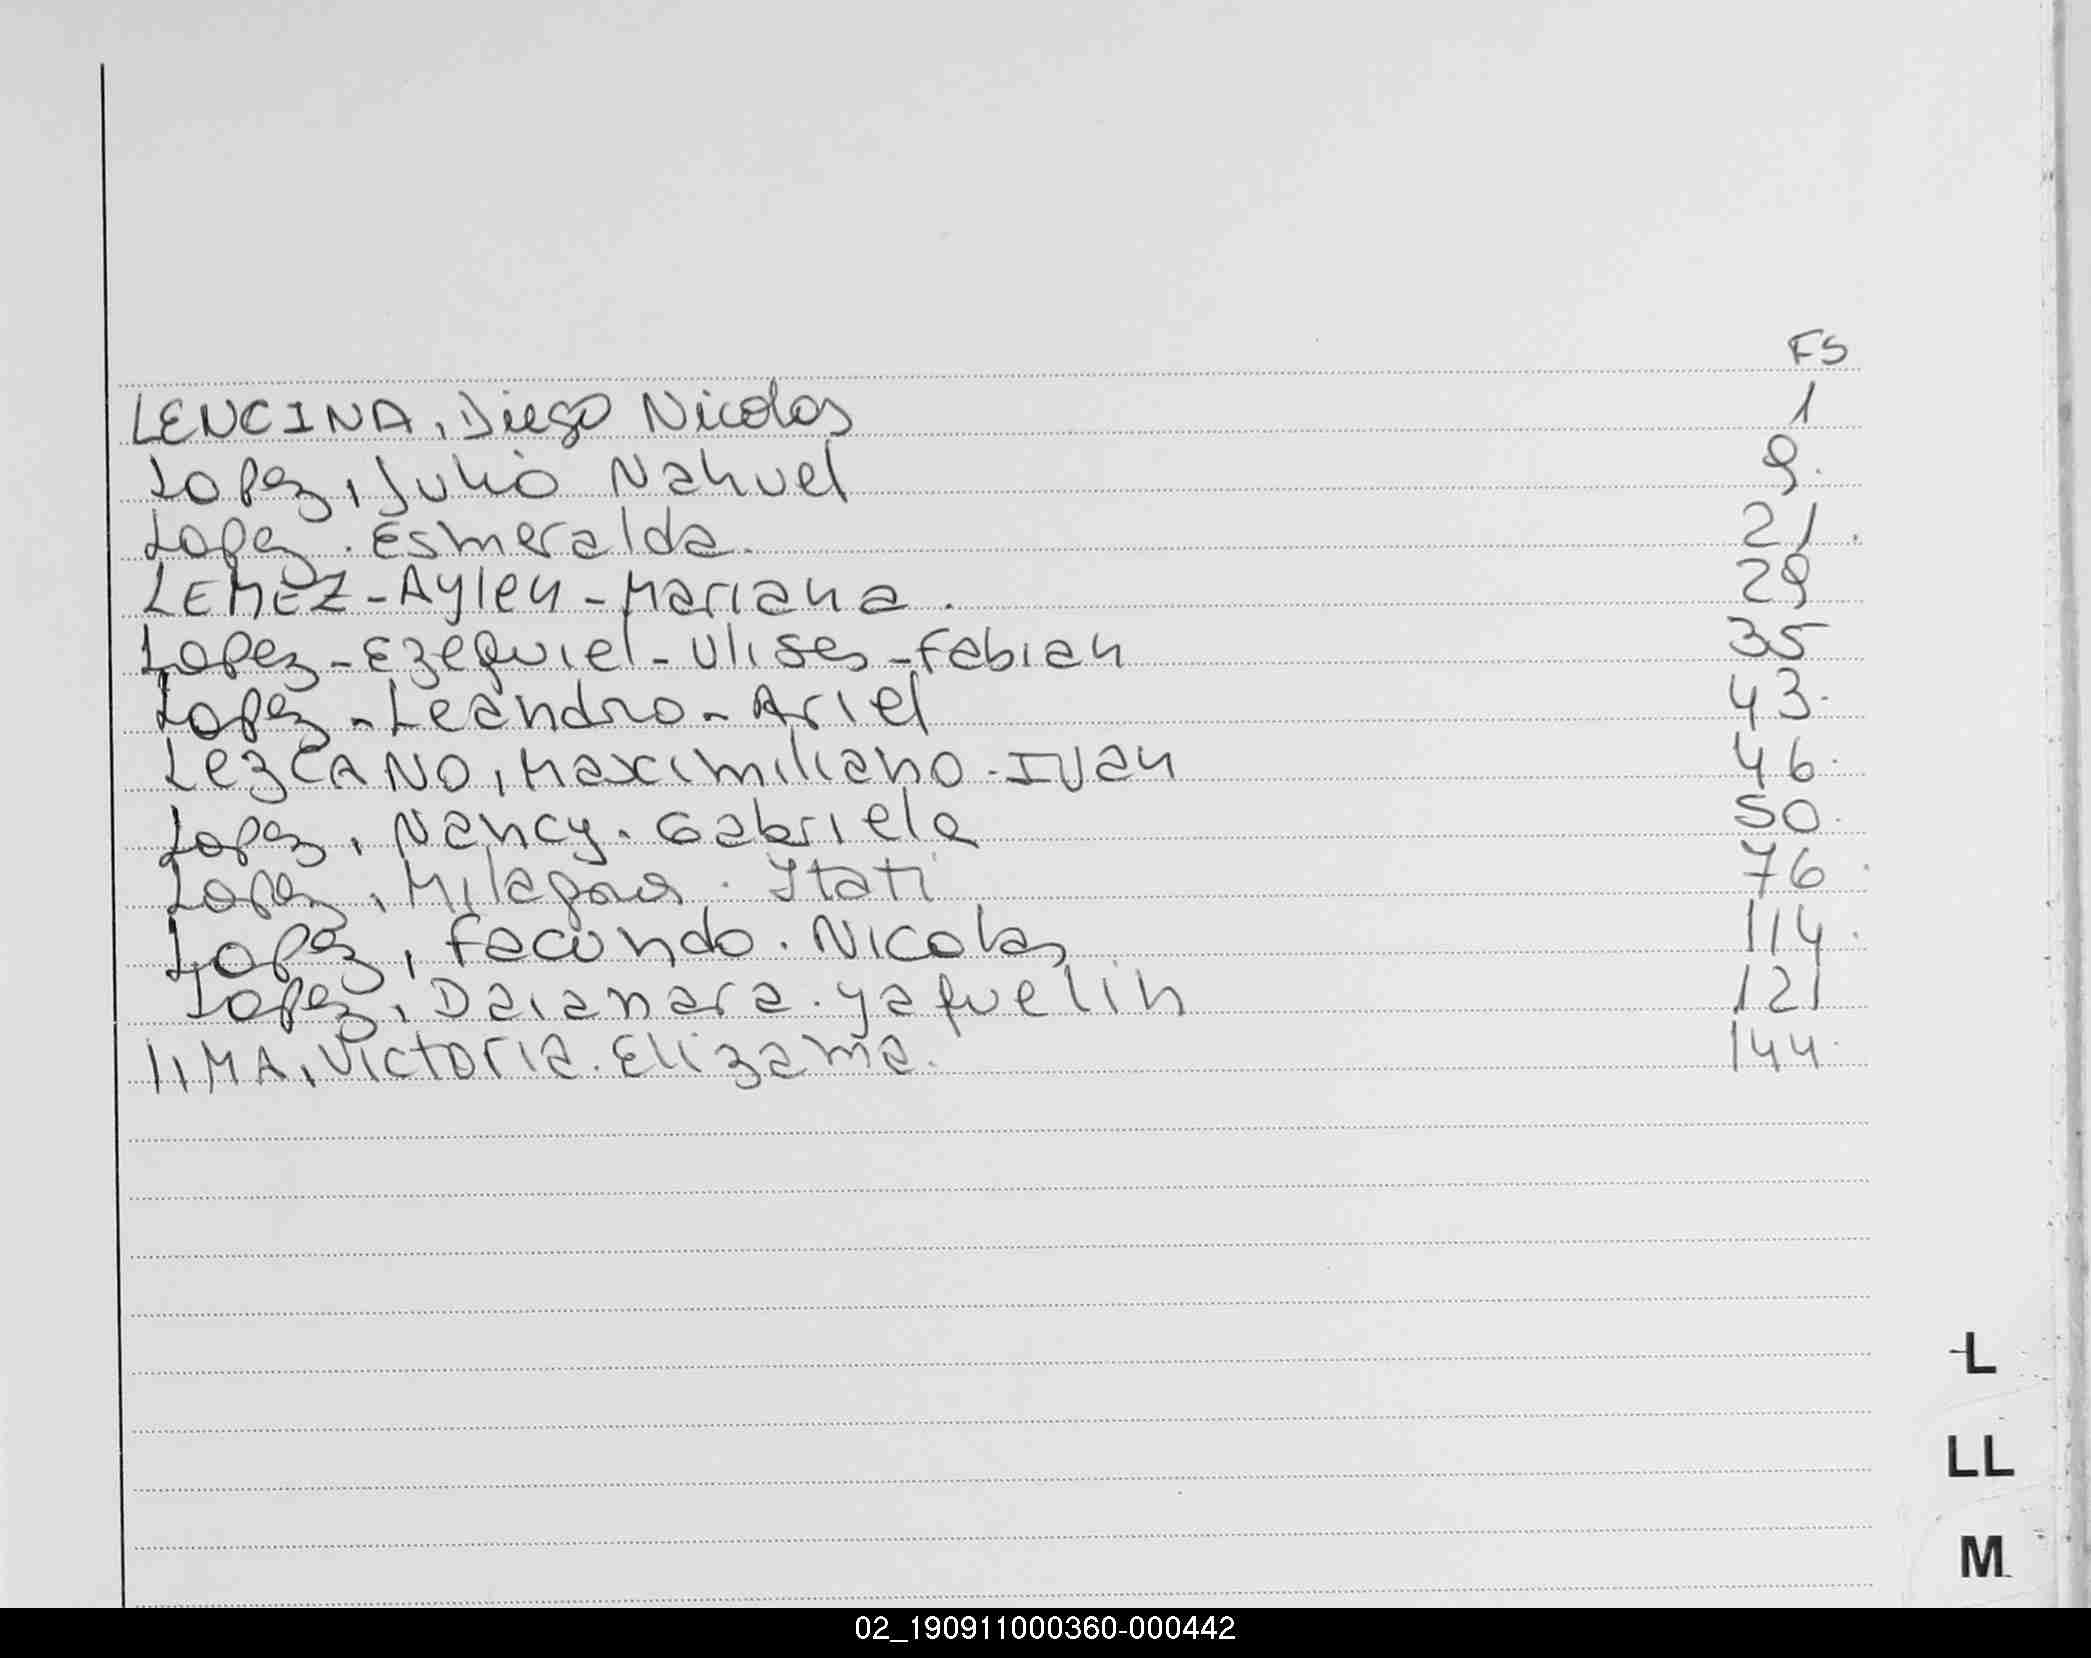 FS
LENCINA, Diego Nicolas 1
Lopez, Julio Nahuel 9.
Lopez. Esmeralda. 21.
LEMEZ-Aylen-Mariana. 29
Lopez-Ezequiel-Ulises-Fabian 35
Lopez-Leandro-Ariel 43.
LezCANO, Maximiliano-Ivan 46.
Lopez, Nancy. Gabriela 50.
Lopez, Milagros. Itati 76.
Lopez, Facundo. Nicolas 114.
Lopez, Daianara. Yaquelin 121
lIMA, Victoria. Elizama. 144.
L
LL
M
02_190911000360-000442